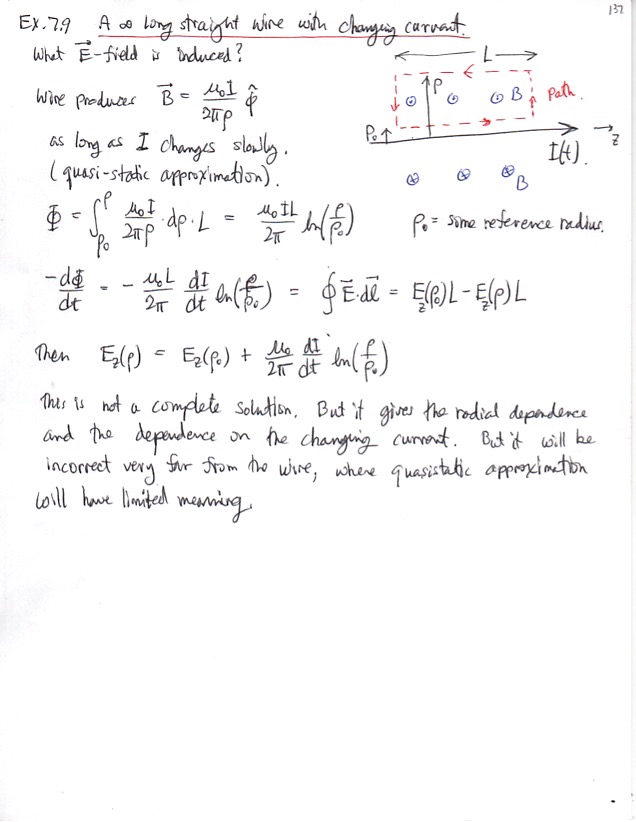 137
Ex. 7.9 A ∞ long straight wire with changing current.
What E⃗-field is induced?
L
Wire produces B⃗ = μ₀I/2πρ φ̂
ρ
B
Path.
as long as I changes slowly.
ρ₀
z
(quasi-static approximation).
I(t).
B
Φ = ∫_ρ₀^ρ μ₀I/2πρ · dρ · L = μ₀IL/2π ln(ρ/ρ₀)
ρ₀ = some reference radius.
-dΦ/dt = - μ₀L/2π dI/dt ln(ρ/ρ₀) = ∮ E⃗·dl⃗ = E_z(ρ₀)L - E_z(ρ)L
Then E_z(ρ) = E_z(ρ₀) + μ₀/2π dI/dt ln(ρ/ρ₀)
This is not a complete solution. But it gives the radial dependence
and the dependence on the changing current. But it will be
incorrect very far from the wire, where quasistatic approximation
will have limited meaning.